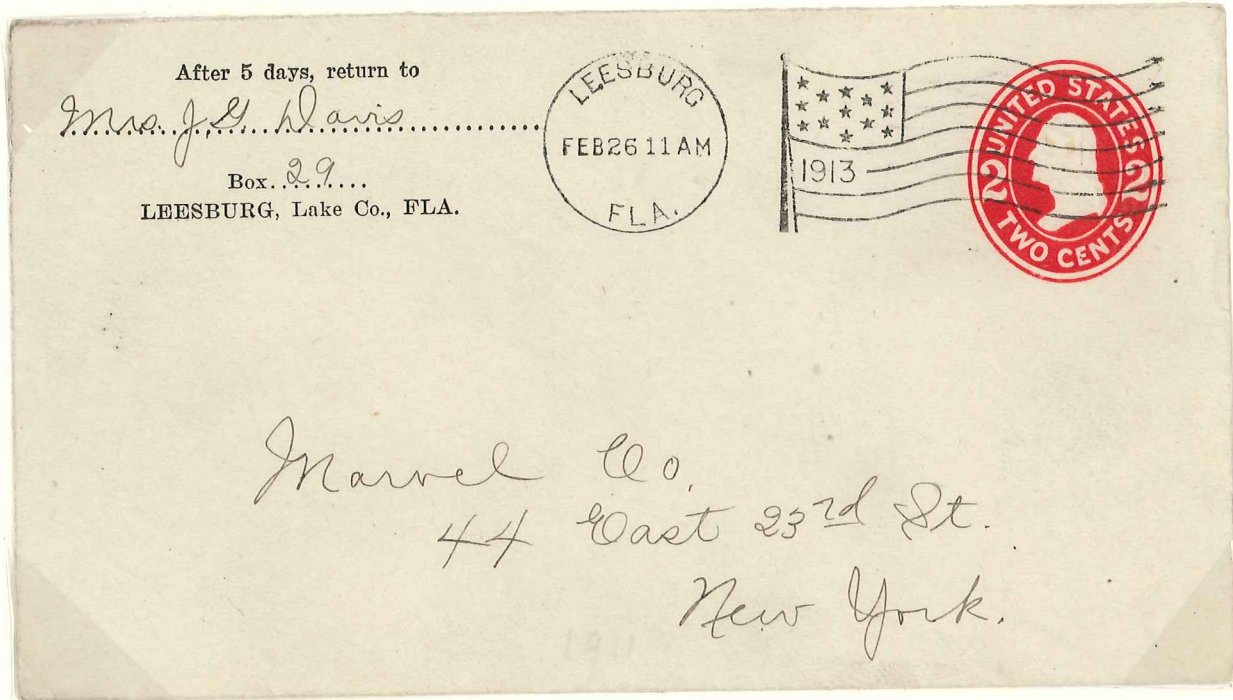 After 5 days, return to
Mrs. J. G. Davis
Box 29
LEESBURG, Lake Co., FLA.
LEESBURG
FEB 26 11 AM
FLA.
1913
UNITED STATES
2 2
TWO CENTS
Marvel Co.
44 East 23rd St.
New York.